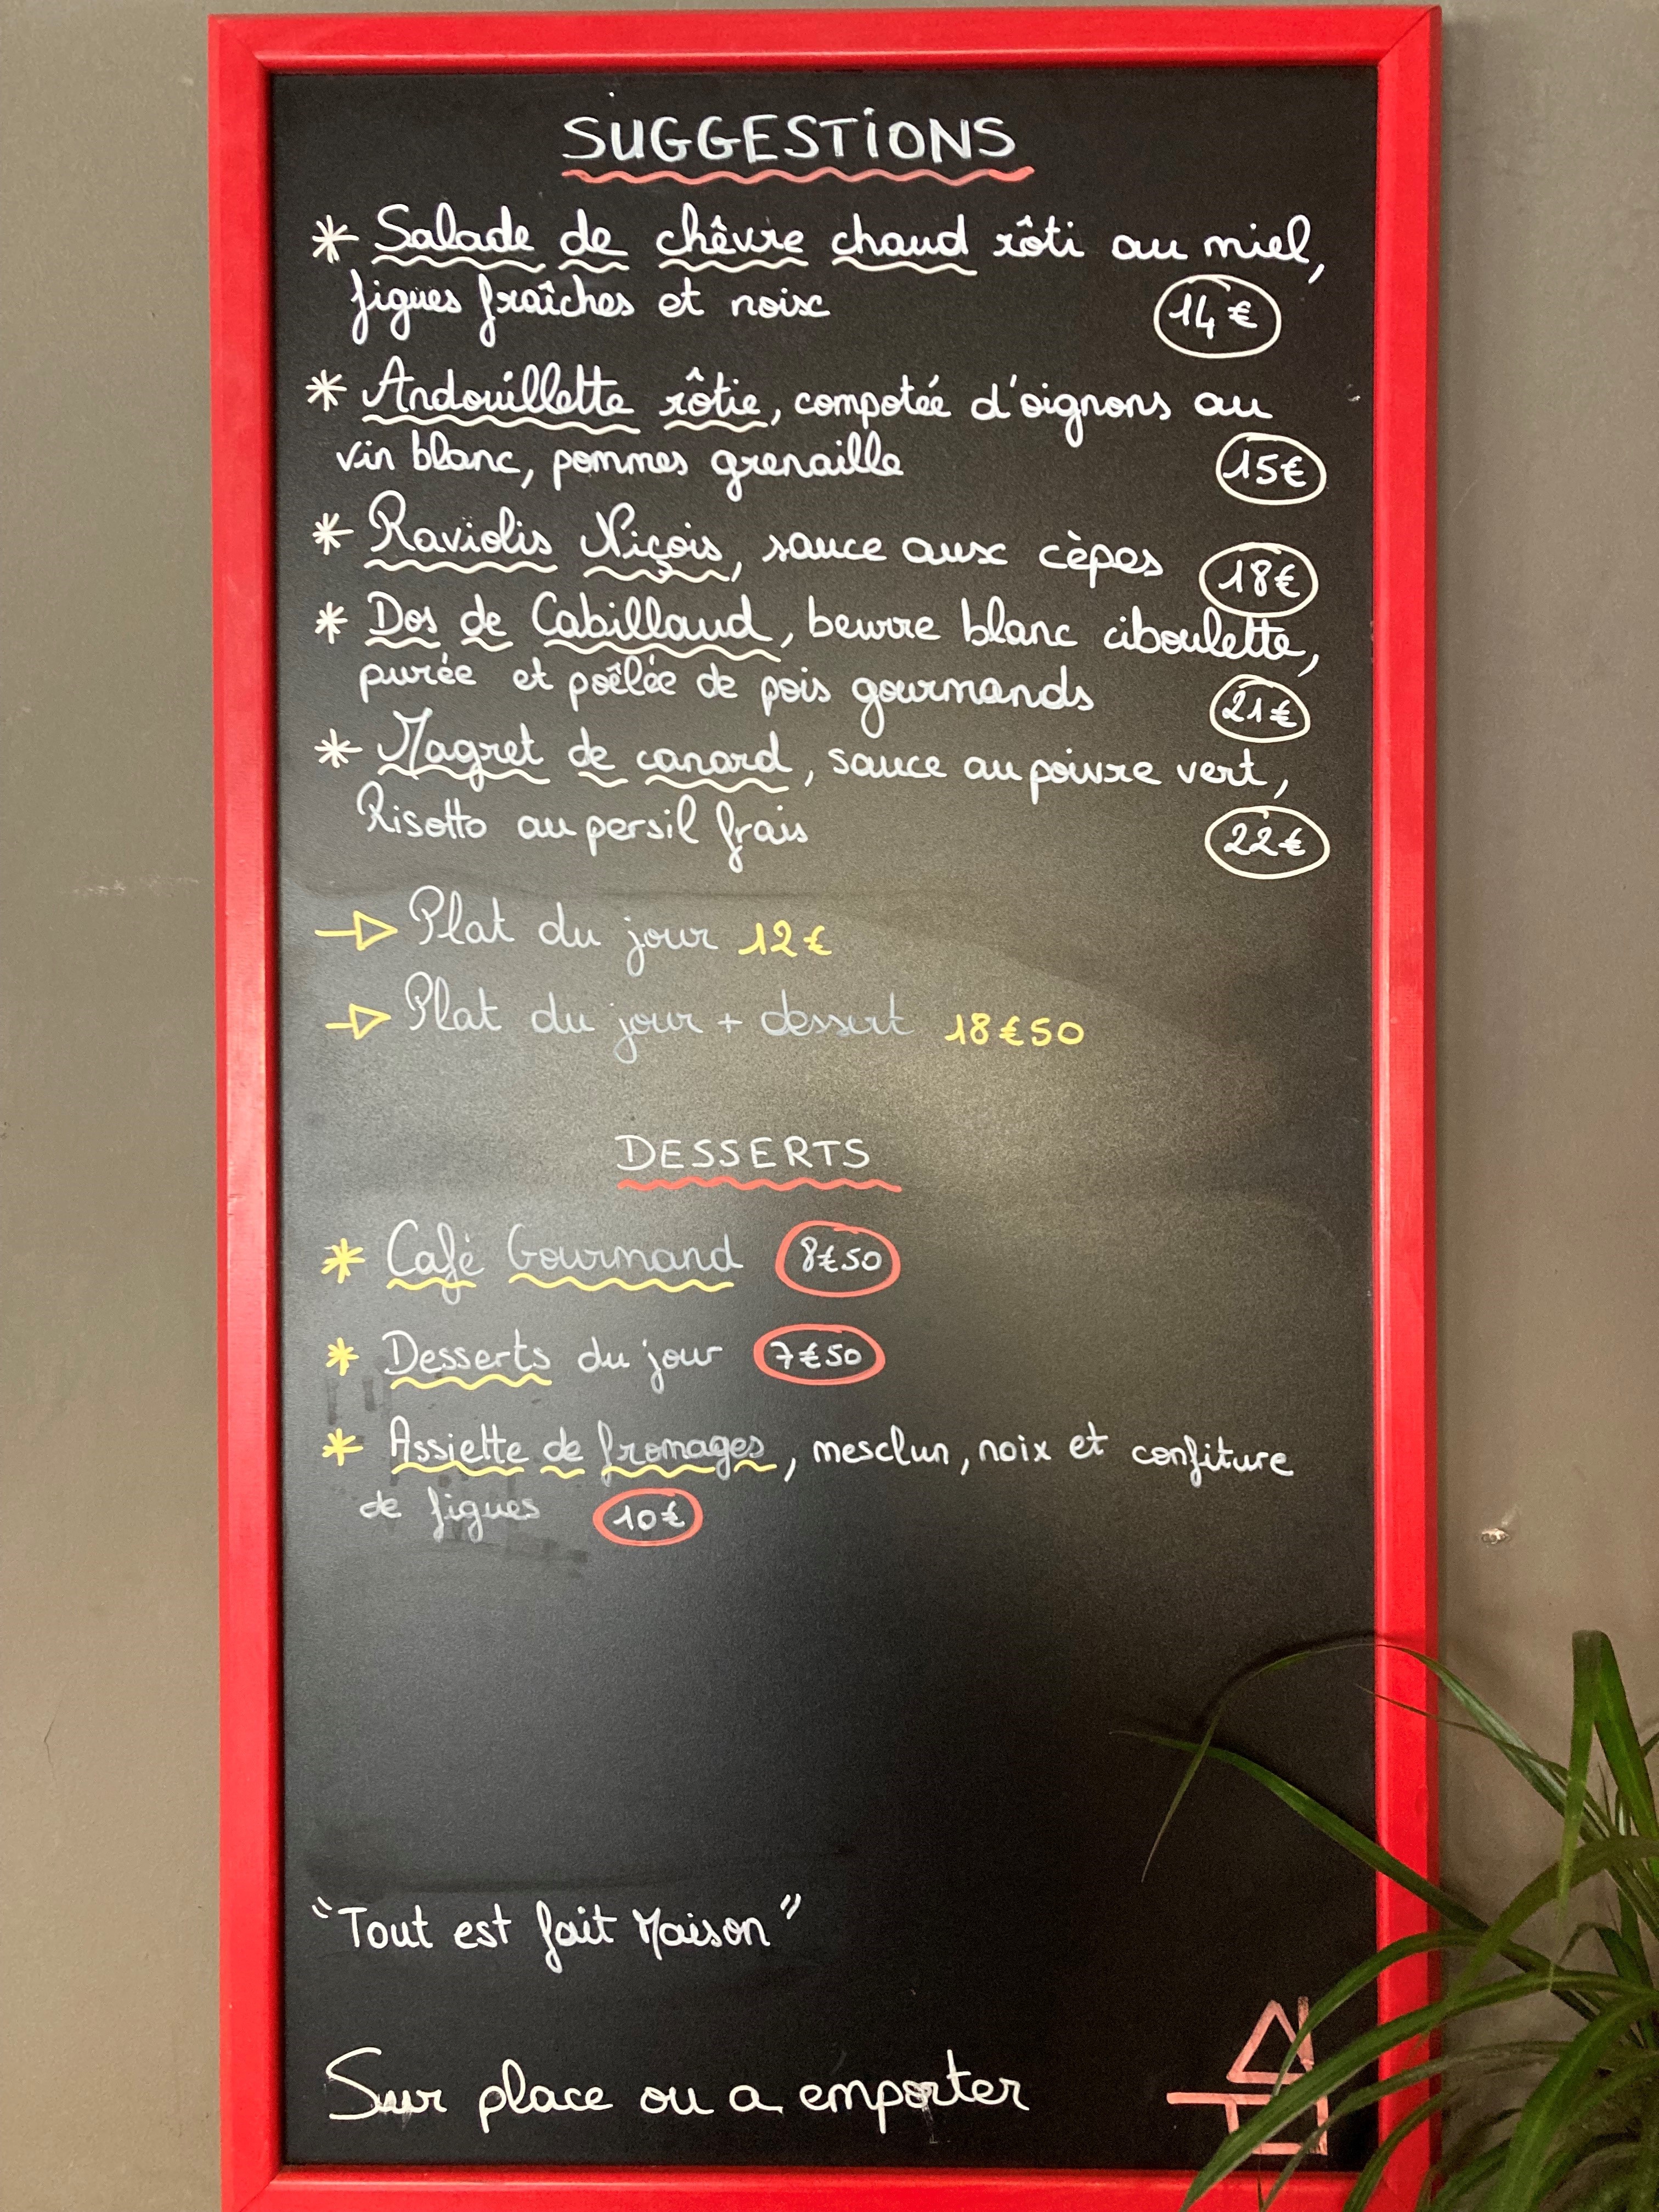 SUGGESTIONS
* Salade de chêvre chaud rôti au miel,
figues fraîches et noix 14€
* Andouillette rôtie, compotée d'oignons au
vin blanc, pommes grenaille 15€
* Raviolis Niçois, sauce aux cèpes 18€
* Dos de Cabillaud, beurre blanc ciboulette,
purée et poêlée de pois gourmands 21€
* Magret de canard, sauce au poivre vert,
Risotto au persil frais 22€
→ Plat du jour 12€
→ Plat du jour + dessert 18€50
DESSERTS
* Café Gourmand 8€50
* Desserts du jour 7€50
* Assiette de fromages, mesclun, noix et confiture
de figues 10€
"Tout est fait Maison"
Sur place ou a emporter